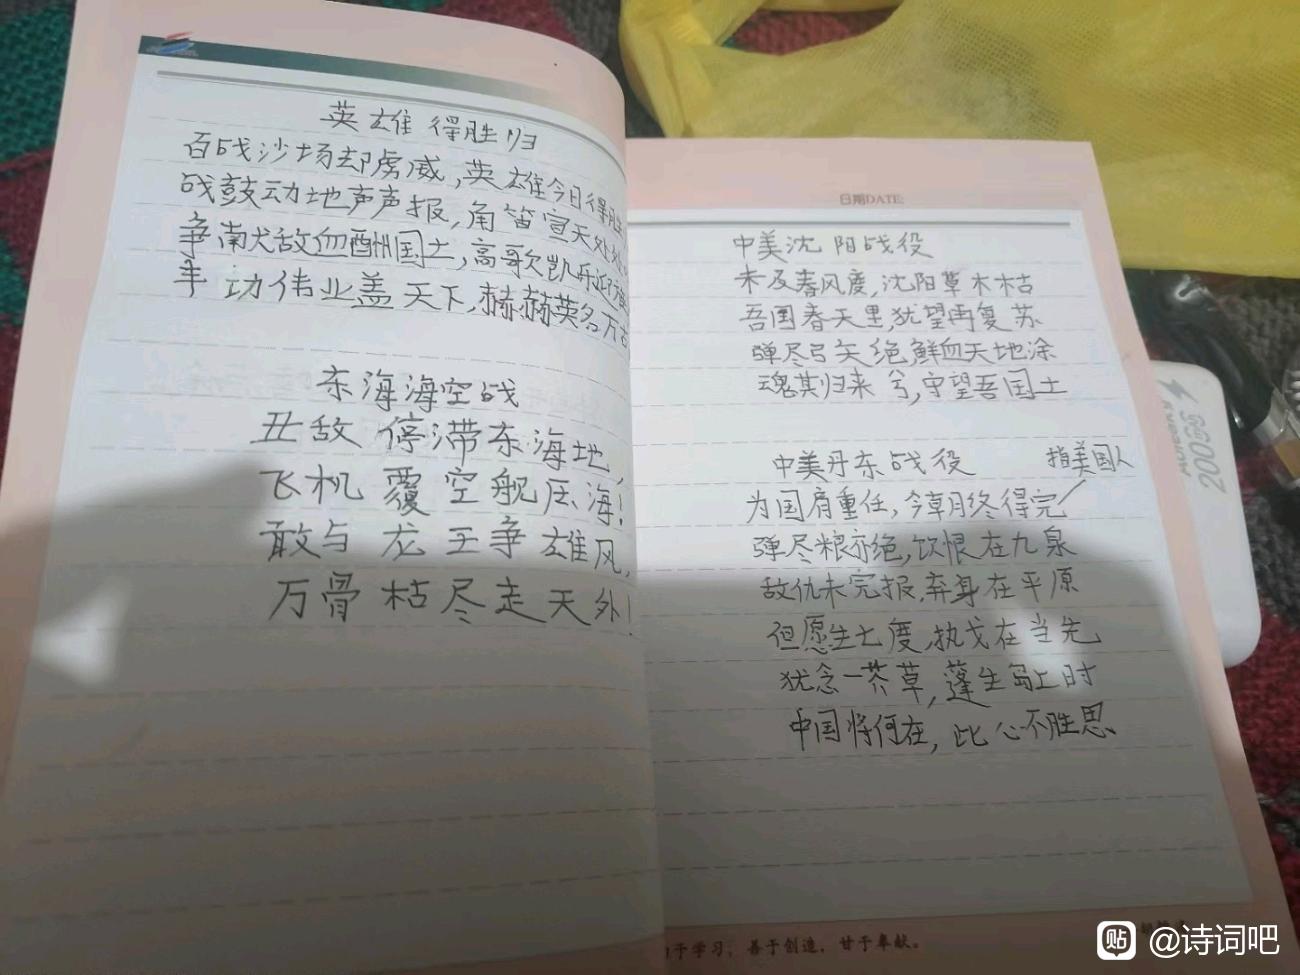 英雄得胜归
百战沙场却虏威，英雄今日得胜
战鼓动地声声报，角笛宣天处处
争南犬敌血酬国土，高歌凯乐迎
丰功伟业盖天下，赫赫英名万古
东海海空战
丑敌停滞东海地，
飞机覆空舰压海！
敢与龙王争雄风，
万骨枯尽走天外！
日期DATE:
中美沈阳战役
未及春风度，沈阳草木枯
吾国春天里，犹望再复苏
弹尽弓矢绝，鲜血天地涂
魂其归来兮，守望吾国土
中美丹东战役 指美国人
为国肩重任，今朝月终得完
弹尽粮亦绝，饮恨在九泉
敌仇未完报，弃身在平原
但愿生七度，执戈在当先
犹念一芥草，蓬生岛上时
中国将何在，此心不胜思
于学习，善于创造，甘于奉献。
20000
贴 @诗词吧